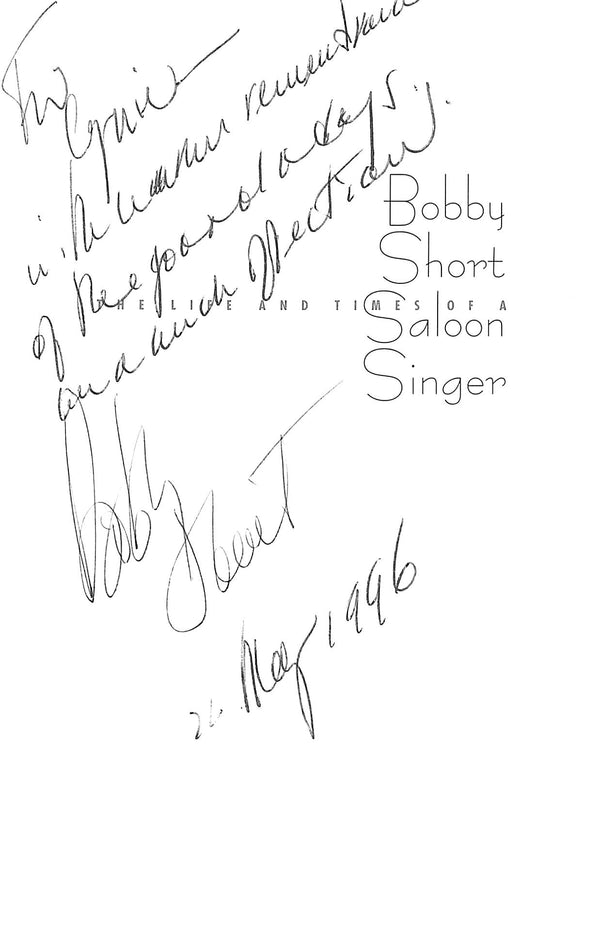 For
with
of the good old days
and much affection.
Bobby
Short
THE LIFE AND TIMES OF A
Saloon
Singer
Bobby Short
May 1996